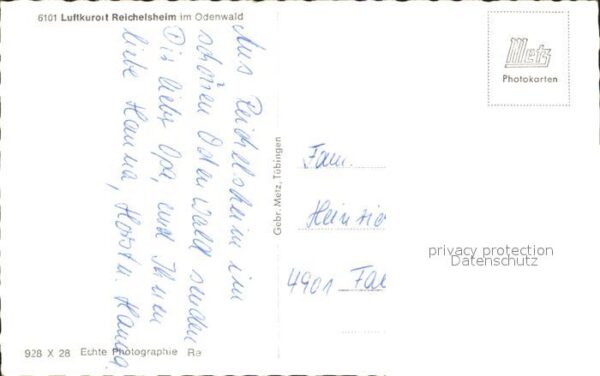 6101 Luftkurort Reichelsheim im Odenwald
Aus Reichelsheim im
schönen Odenwald senden
Dir lieber Opa, und Ihnen
liebe Hanna, Horst u. Hanna.
Gebr. Metz, Tübingen
Metz
Photokarten
Fam.
Heinric
4901
privacy protection
Datenschutz
928 X 28 Echte Photographie Ra